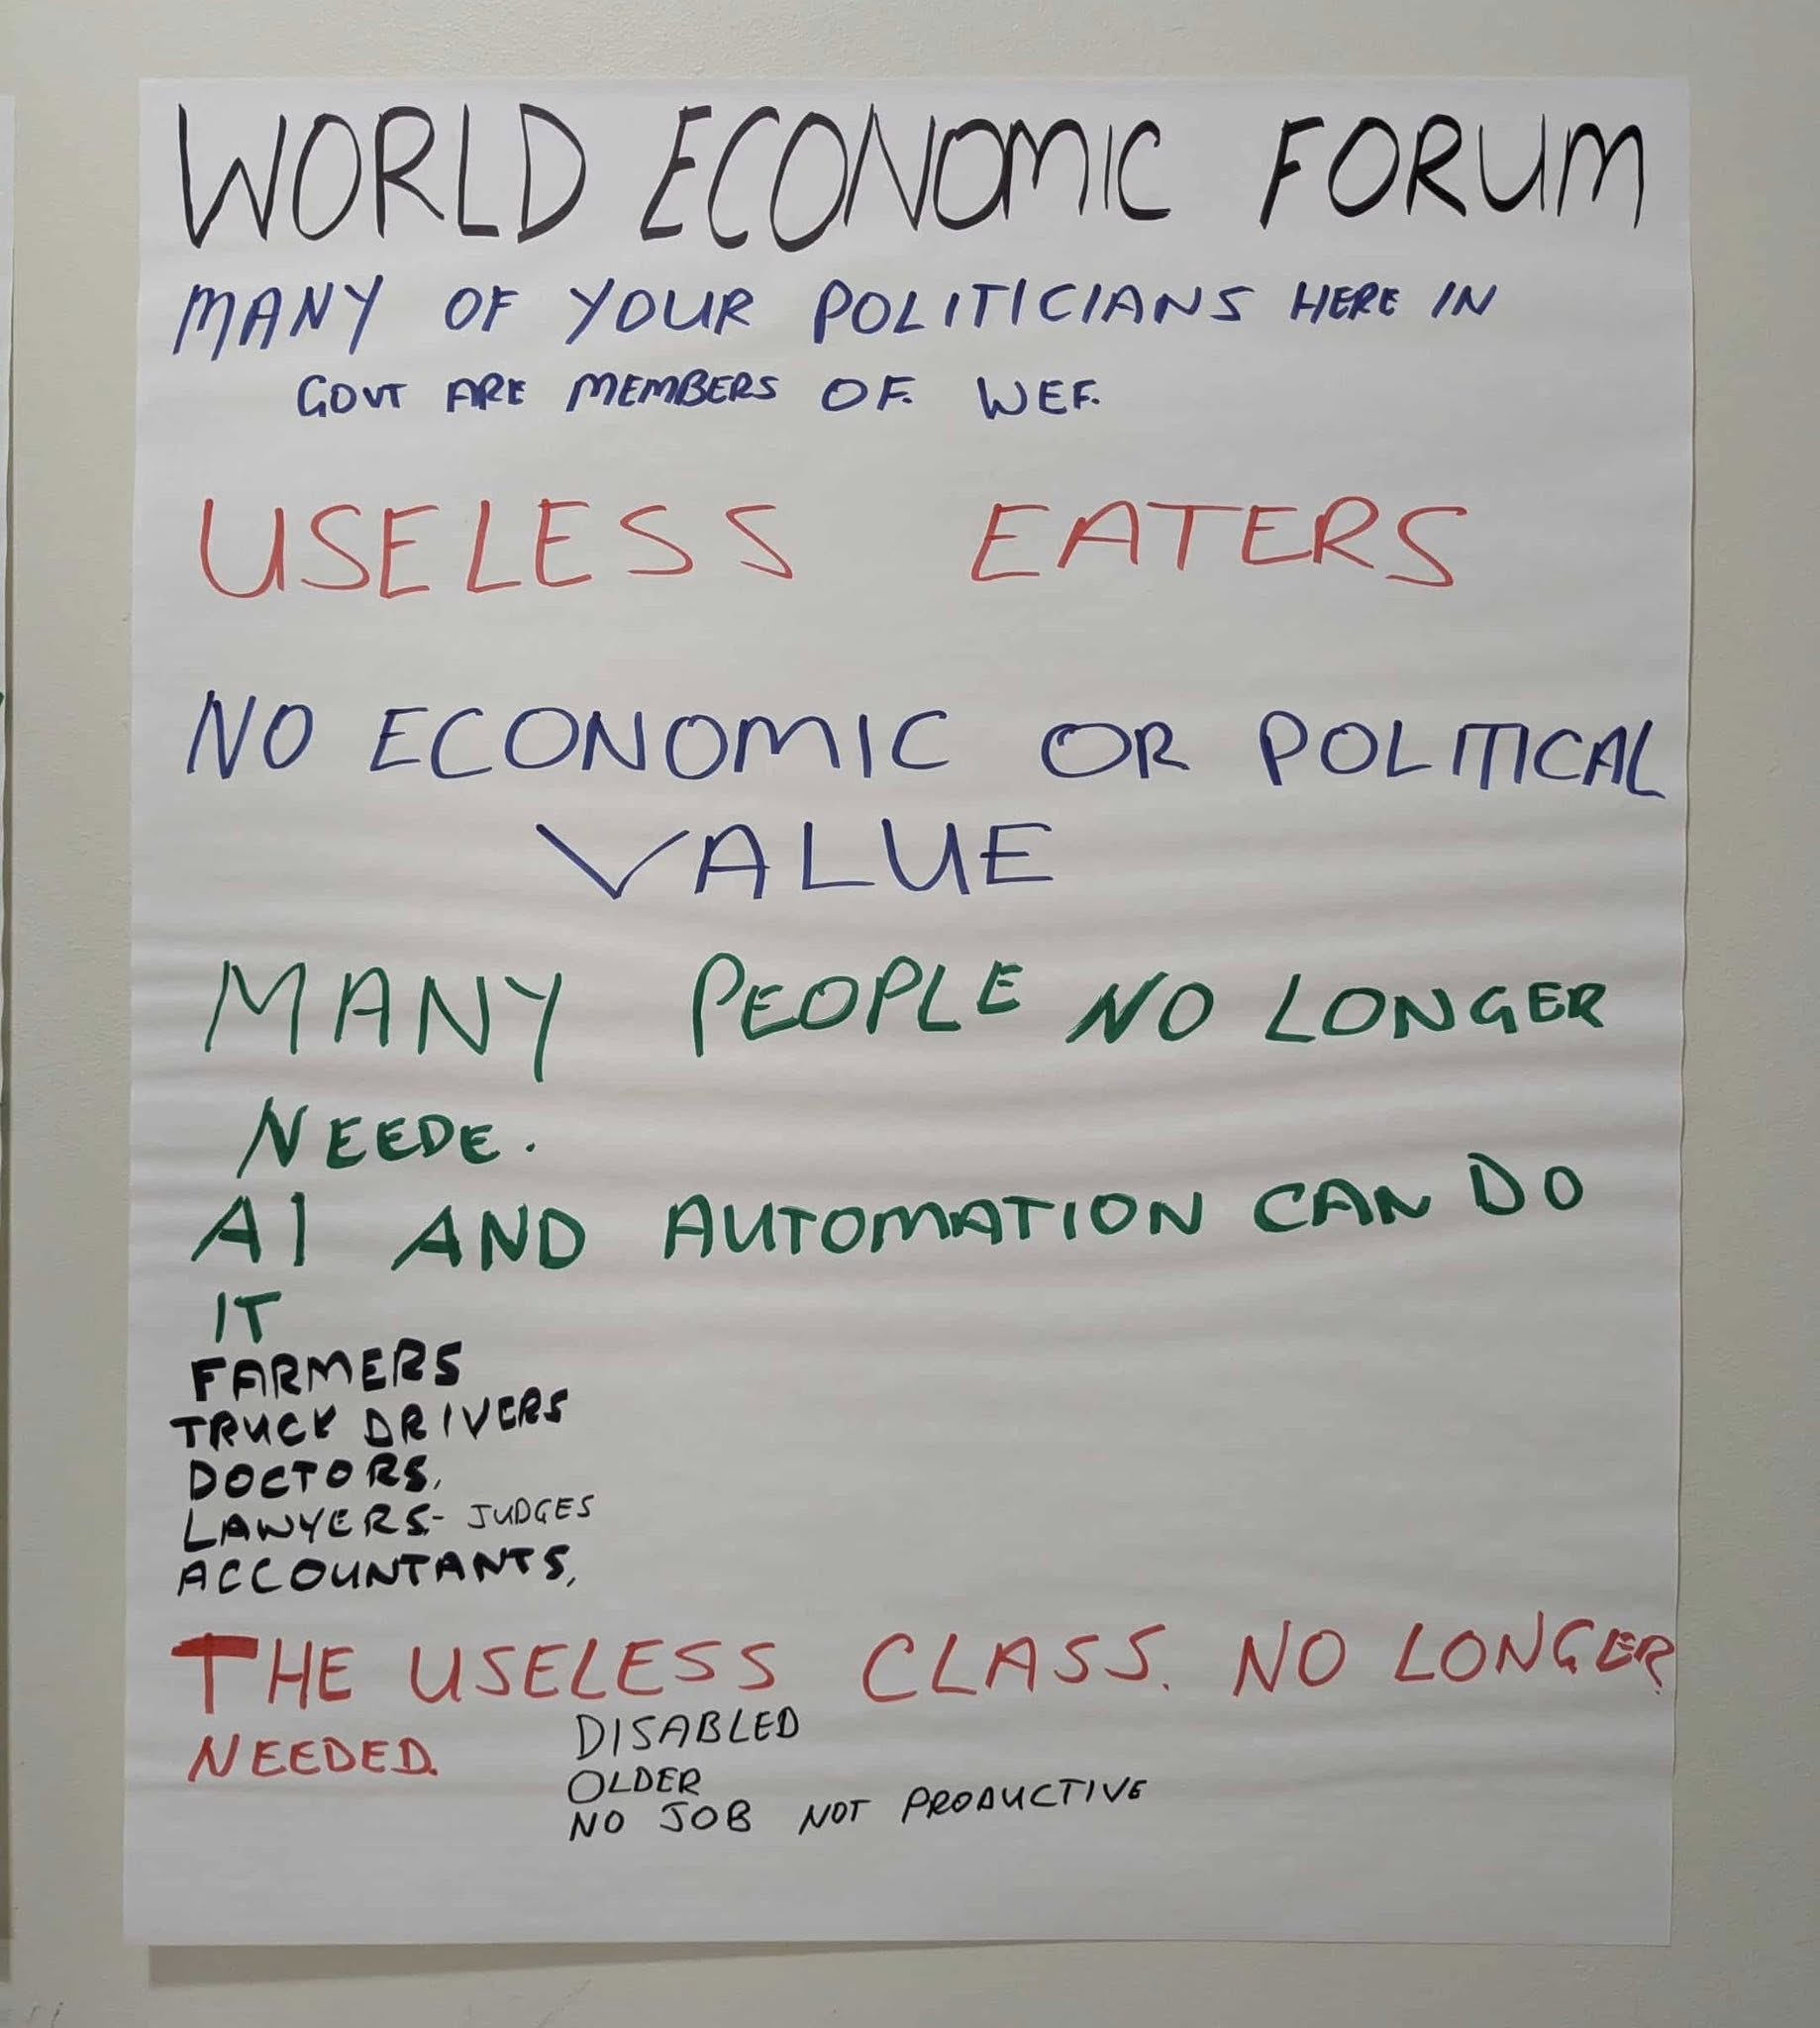 WORLD ECONOMIC FORUM
MANY OF YOUR POLITICIANS HERE IN
GOVT ARE MEMBERS OF. WEF.
USELESS EATERS
NO ECONOMIC OR POLITICAL
VALUE
MANY PEOPLE NO LONGER
NEEDE.
AI AND AUTOMATION CAN DO
IT
FARMERS
TRUCK DRIVERS
DOCTORS,
LAWYERS- JUDGES
ACCOUNTANTS,
THE USELESS CLASS. NO LONGER
NEEDED.
DISABLED
OLDER
NO JOB NOT PRODUCTIVE